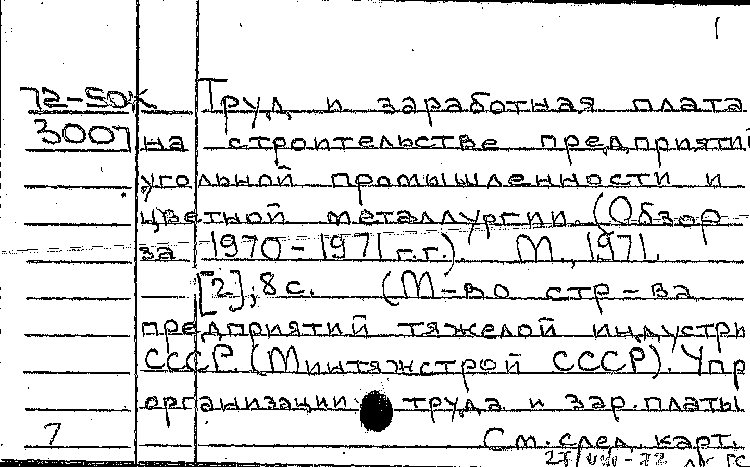 1
72-50К Труд и заработная плата
3007 на строительстве предприятий
угольной промышленности и
цветной металлургии. (Обзор
за 1970-1971 г.г.). М., 1971.
[2], 8 с. (М-во стр-ва
предприятий тяжелой индустри
СССР. (Минтяжстрой СССР). Упр
организации труда и зар.платы
7 См.след.карт.